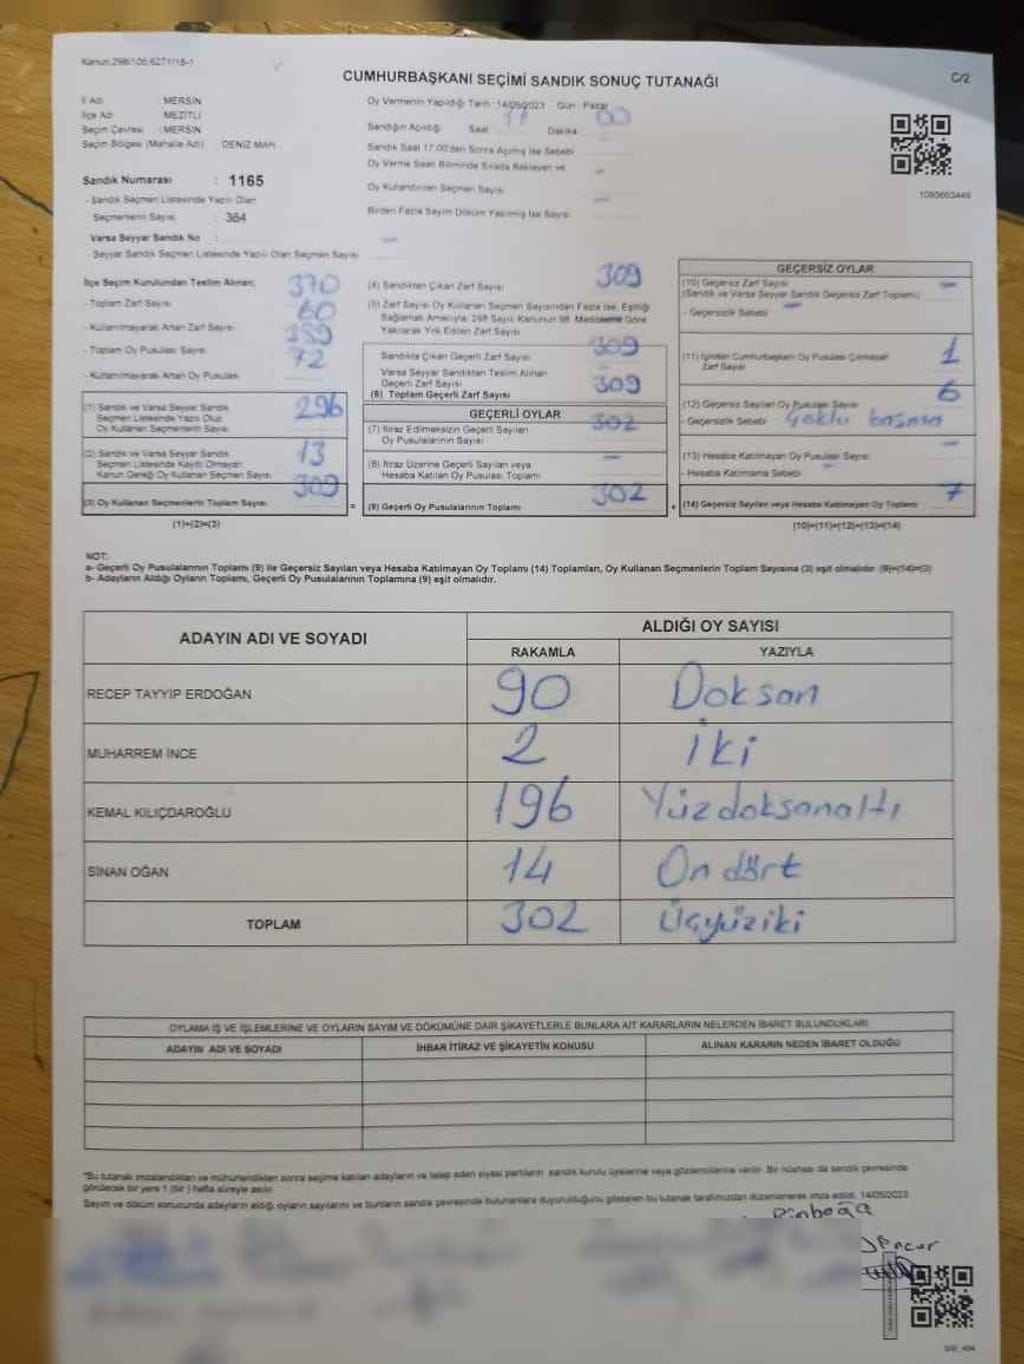 Kanun:298/105,6271/18-1
CUMHURBAŞKANI SEÇİMİ SANDIK SONUÇ TUTANAĞI
C/2
İl Adı MERSİN
İlçe Adı MEZİTLİ
Seçim Çevresi : MERSİN
Seçim Bölgesi (Mahalle Adı) DENİZ MAH.
Oy Vermenin Yapıldığı Tarih :14/05/2023 Gün : Pazar
Sandığın Açıldığı Saat 17 Dakika 00
Sandık Saat 17.00'den Sonra Açılmış İse Sebebi
Oy Verme Saati Bitiminde Sırada Bekleyen ve
Oy Kullandırılan Seçmen Sayısı
Birden Fazla Sayım Döküm Yapılmış İse Sayısı
Sandık Numarası : 1165
- Sandık Seçmen Listesinde Yazılı Olan
Seçmenlerin Sayısı 364
Varsa Seyyar Sandık No :
- Seyyar Sandık Seçmen Listesinde Yazılı Olan Seçmen Sayısı
1093663449
İlçe Seçim Kurulundan Teslim Alınan;
- Toplam Zarf Sayısı 370
- Kullanılmayarak Artan Zarf Sayısı 60
- Toplam Oy Pusulası Sayısı 389
- Kullanılmayarak Artan Oy Pusulası 72
(1) Sandık ve Varsa Seyyar Sandık
Seçmen Listesinde Yazılı Olup
Oy Kullanan Seçmenlerin Sayısı 296
(2) Sandık ve Varsa Seyyar Sandık
Seçmen Listesinde Kayıtlı Olmayan
Kanun Gereği Oy Kullanan Seçmen Sayısı 13
(3) Oy Kullanan Seçmenlerin Toplam Sayısı 309
(1)+(2)=(3)
(4) Sandıktan Çıkan Zarf Sayısı 309
(5) Zarf Sayısı Oy Kullanan Seçmen Sayısından Fazla İse, Eşitliği
Sağlamak Amacıyla, 298 Sayılı Kanunun 98. Maddesine Göre
Yakılarak Yok Edilen Zarf Sayısı
Sandıkta Çıkan Geçerli Zarf Sayısı 309
Varsa Seyyar Sandıktan Teslim Alınan
Geçerli Zarf Sayısı
(6) Toplam Geçerli Zarf Sayısı 309
GEÇERLİ OYLAR
(7) İtiraz Edilmeksizin Geçerli Sayılan
Oy Pusulalarının Sayısı 302
(8) İtiraz Üzerine Geçerli Sayılan veya
Hesaba Katılan Oy Pusulası Toplamı -
(9) Geçerli Oy Pusulalarının Toplamı 302
GEÇERSİZ OYLAR
(10) Geçersiz Zarf Sayısı -
(Sandık ve Varsa Seyyar Sandık Geçersiz Zarf Toplamı)
- Geçersizlik Sebebi -
(11) İçinden Cumhurbaşkanı Oy Pusulası Çıkmayan
Zarf Sayısı 1
(12) Geçersiz Sayılan Oy Pusulası Sayısı 6
- Geçersizlik Sebebi Çoklu basma
(13) Hesaba Katılmayan Oy Pusulası Sayısı -
- Hesaba Katılmama Sebebi -
(14) Geçersiz Sayılan veya Hesaba Katılmayan Oy Toplamı 7
(10)+(11)+(12)+(13)=(14)
NOT:
a- Geçerli Oy Pusulalarının Toplamı (9) ile Geçersiz Sayılan veya Hesaba Katılmayan Oy Toplamı (14) Toplamları, Oy Kullanan Seçmenlerin Toplam Sayısına (3) eşit olmalıdır. (9)+(14)=(3)
b- Adayların Aldığı Oyların Toplamı, Geçerli Oy Pusulalarının Toplamına (9) eşit olmalıdır.
ADAYIN ADI VE SOYADI ALDIĞI OY SAYISI
RAKAMLA YAZIYLA
RECEP TAYYİP ERDOĞAN 90 Doksan
MUHARREM İNCE 2 İki
KEMAL KILIÇDAROĞLU 196 Yüzdoksanaltı
SİNAN OĞAN 14 On dört
TOPLAM 302 Üçyüziki
OYLAMA İŞ VE İŞLEMLERİNE VE OYLARIN SAYIM VE DÖKÜMÜNE DAİR ŞİKAYETLERLE BUNLARA AİT KARARLARIN NELERDEN İBARET BULUNDUKLARI
ADAYIN ADI VE SOYADI İHBAR İTİRAZ VE ŞİKAYETİN KONUSU ALINAN KARARIN NEDEN İBARET OLDUĞU
*Bu tutanak imzalandıktan ve mühürlendikten sonra seçime katılan adayların ve talep eden siyasi partilerin sandık kurulu üyelerine veya gözlemcilerine verilir. Bir nüshası da sandık çevresinde
görülecek bir yere 1 (bir) hafta süreyle asılır.
Sayım ve döküm sonucunda adayların aldığı oyların sayılarını ve bunların sandık çevresinde bulunanlara duyurulduğunu gösteren bu tutanak tarafımızdan düzenlenerek imza edildi. 14/05/2023